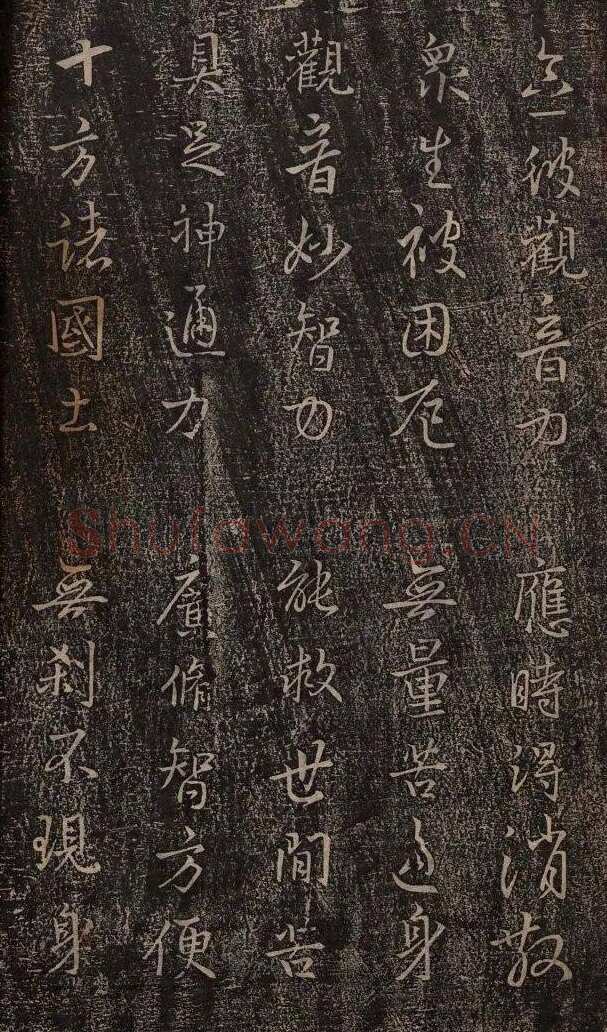 念彼觀音力 應時得消散
衆生被困厄 無量苦逼身
觀音妙智力 能救世間苦
具足神通力 廣脩智方便
十方諸國土 無刹不現身
Shufawang.CN